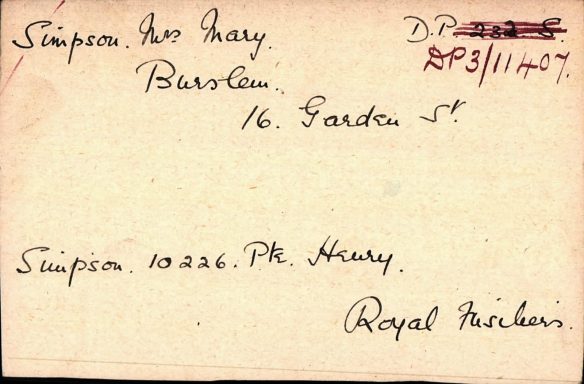 Simpson. Mrs Mary. D.P. 232 S.
DP3/11407.
Burslem.
16. Garden St.
Simpson. 10226. Pte. Henry.
Royal Fusiliers.